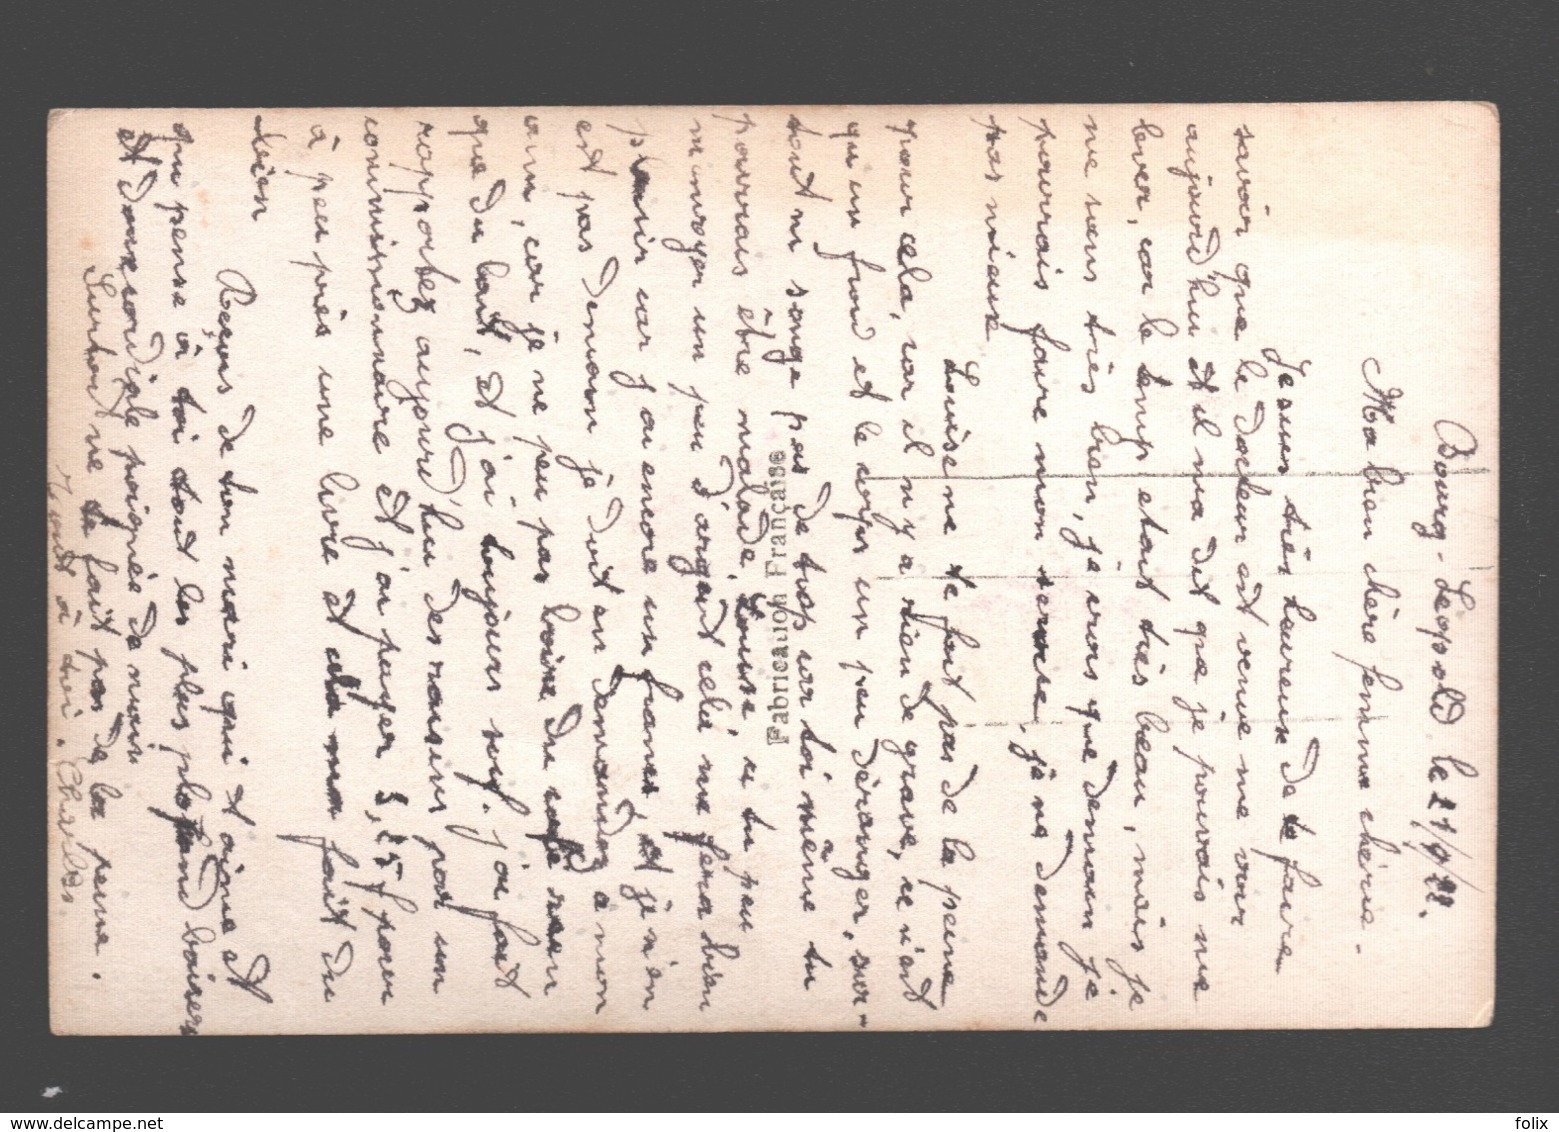 Bourg-Leopold le 21/9/22.
Ma bien chère femme chérie.
Je suis très heureux de te faire
savoir que le docteur est venue me voir
aujourd'hui et il ma dit que je pouvais me
lever, car le temp etait très beau, mais je
me sens très bien, je crois que demain je
pourrais faire mon service, je ne demande
pas mieux
Louise ne te fait pas de la peine
pour cela, car il n'y a rien de grave, ce n'est
qu'un froid et le corps un peu déranger, sur-
tout ni songe pas de trop car toi même tu
pourrais être malade. Louise si tu peu
m'envoyer un peu d'argent celà me fera bien
plaisir car j'ai encore un franc, et je n'en
est pas demain je doit en demander à mon
ami, car je ne peu pas boire du café rien
que du lait, et j'ai toujours soif. j'ai fait
rapportez aujourd'hui des raisins par un
commissionnaire et j'ai payer 3,25 f pour
à peu près une livre et ela ma fait du
bien
Reçois de ton mari qui t'aime et
qui pense à toi tout les plus profond baisers
et d'une cordiale poignés de main
Surtout ne te fait pas de la peine.
Tout à toi. Charles.
Fabrication Française
www.delcampe.net
folix